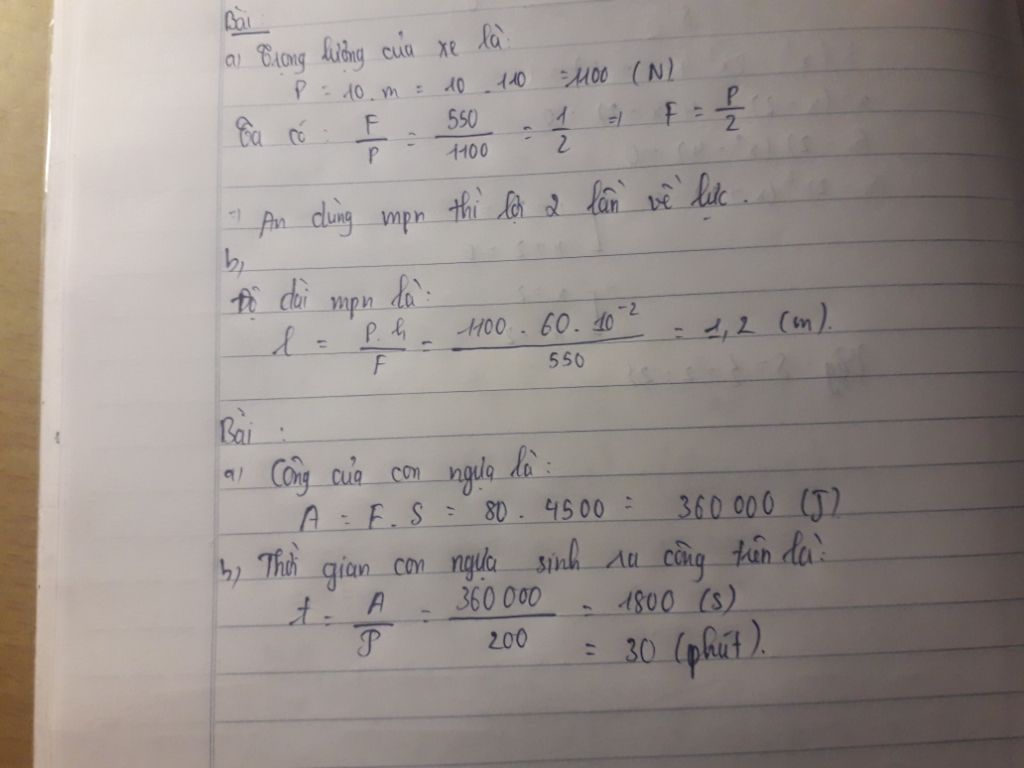 Bài
a) Trọng lượng của xe là:
P = 10.m = 10 . 110 = 1100 (N)
Ta có: F/P = 550/1100 = 1/2 => F = P/2
=> An dùng mpn thì lợi 2 lần về lực.
b,
Độ dài mpn là:
l = P.h/F = 1100 . 60 . 10⁻²/550 = 1,2 (m).
Bài :
a) Công của con ngựa là:
A = F.S = 80 . 4500 = 360 000 (J)
b, Thời gian con ngựa sinh ra công trên là:
t = A/P = 360 000/200 = 1800 (s)
= 30 (phút).